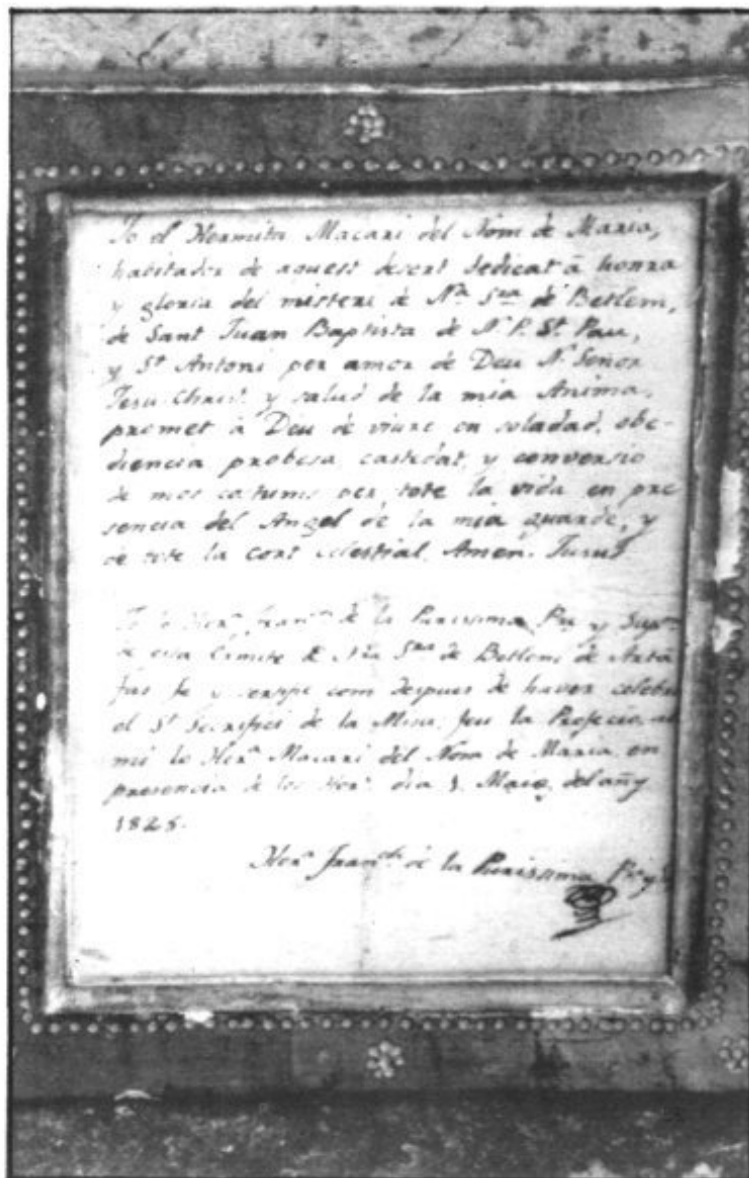 Jo el Hermita Macari del Nom de Maria,
habitador de aquest desert dedicat â honra
y gloria del misteri de Nᵃ Sʳᵃ de Betlem,
de Sant Juan Baptista de N. P. Sᵗ. Pau,
y Sᵗ Antoni per amor de Deu N. Señor
Jesu-Christ. y salud de la mia Anima,
promet â Deu de viure en soladad, obe-
diencia probesa, castedat, y conversio
de mos costums per tote la vida en pre
sencia del Angel de la mia guarde, y
de tote la cort celestial. Amen. Jesus

Jo lo Herᵐ. Franᶜʰ de la Purissima Pʳᵉ y Supᵒʳ
de esta Ermite de Nᵗᵃ Sʳᵃ de Betlem de Artá
fas fe y com despues de haver celebra
el Sᵗ Secrifici de la Missa, feu la Profecio,
lo Herᵃ Macari del Nom de Maria, en
presencia de los Herˢ. dia Maig del añy
182

Herᵃ Franᶜʰ de la Purissima Pʳᵉ y